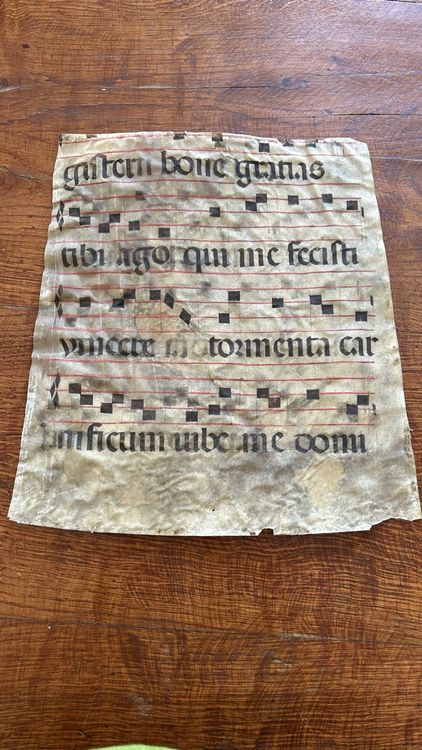 gister bone gratias
tibi ago, qui me fecisti
vincere tormenta car
nificum iube me domi